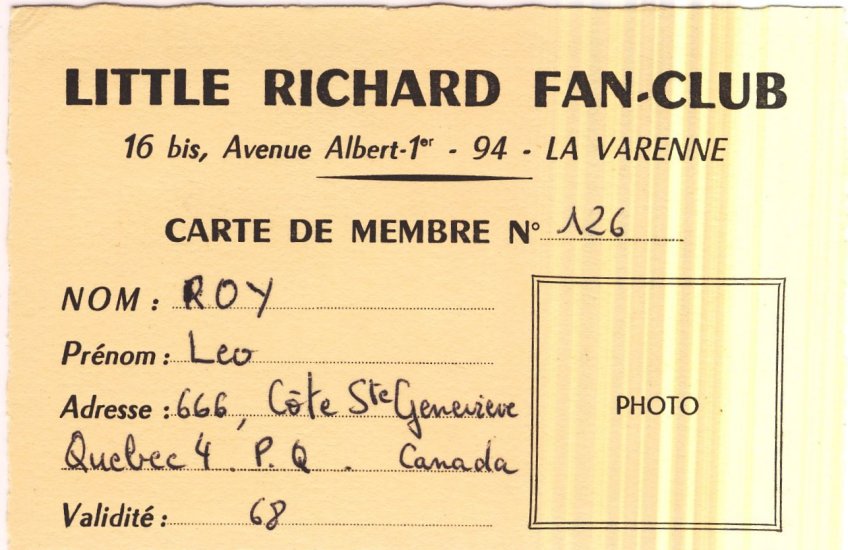 LITTLE RICHARD FAN-CLUB
16 bis, Avenue Albert-1er - 94 - LA VARENNE
CARTE DE MEMBRE N° 126
NOM : ROY
Prénom : Leo
Adresse : 666, Côte Ste Genevieve
Quebec 4. P.Q. Canada
PHOTO
Validité : 68